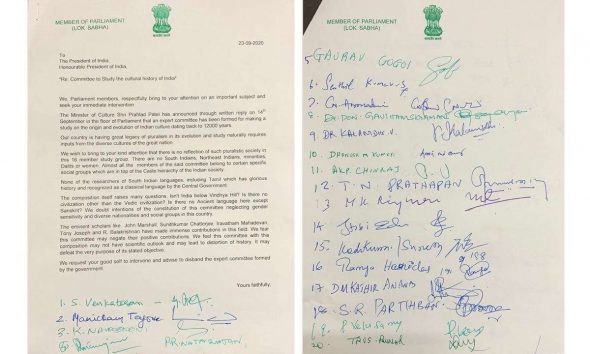 MEMBER OF PARLIAMENT
(LOK SABHA)
23-09-2020
To
The President of India,
Honourable President of India,
"Re: Committee to Study the cultural history of India"
We, Parliament members, respectfully bring to your attention on an important subject and
seek your immediate intervention
The Minister of Culture Shri Prahlad Patel has announced through written reply on 14th
September in the floor of Parliament that an expert committee has been formed for making a
study on the origin and evolution of Indian culture dating back to 12000 years.
Our country is having great legacy of pluralism in its evolution and study naturally requires
inputs from the diverse cultures of the great nation.
We wish to bring to your kind attention that there is no reflection of such pluralistic society in
this 16 member study group. There are no South Indians, Northeast Indians, minorities,
Dalits or women. Almost all the members of the said committee belong to certain specific
social groups which are in top of the Caste hierarchy of the Indian society.
None of the researchers of South Indian languages, including Tamil which has glorious
history and recognized as a classical language by the Central Government.
The composition itself raises many questions. Isn't India below Vindhya Hill? Is there no
civilization other than the Vedic civilization? Is there no Ancient language here except
Sanskrit? We doubt intentions of the constitution of this committee neglecting gender
sensitivity and diverse nationalities and social groups in this country.
The eminent scholars like John Marshall, Sunithikumar Chatterjee, Iravatham Mahadevan,
Tony Joseph and R. Balakrishnan have made immense contributions in this field. We fear this
committee may negate their positive contributions. We feel this committee with this
composition may not have scientific outlook and may lead to distortion of history. It may
defeat the very purpose of its stated objective.
We request your good self to intervene and advise to disband the expert committee formed
by the government
Yours faithfully,
1. S. Venkatesan
2. Manickam Tagore
3. K. NAVASKANI
P.R. NATARAJAN
MEMBER OF PARLIAMENT
(LOK SABHA)
5. GAURAV GOGOI
6. Senthil Kumar. S
7.
8.
9. DR KALANIDHI. V
10.
11. AKP. CHINRAJ
12. T. N. PRATHAPAN
13
14
15.
16 Ramya Haridas
17 DM KATHIR ANAND
18. S. R. PARTHIBAN
19. P Velusamy
20.